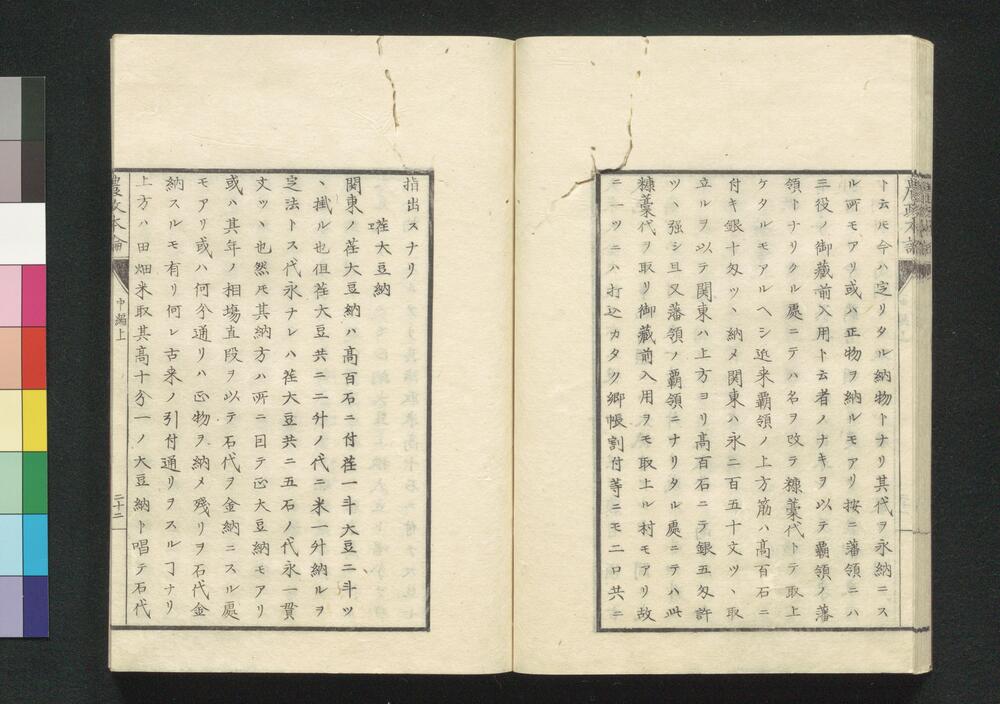 ト云𪜈今ハ定リタル納物トナリ其代ヲ永納ニス
ル所モアリ或ハ正物ヲ納ルモアリ按ニ藩領ニハ
三役ノ御藏前入用ト云者ノナキヲ以テ覇領ノ藩
領トナリクル處ニテハ名ヲ改ラ糠藁代トテ取上
ケタルモアルヘシ近来覇領ノ上方筋ハ髙百石ニ
付キ銀十匁ツヽ納メ関東ハ永二百五十文ツヽ取
立ルヲ以テ関東ハ上方ヨリ髙百石ニテ銀五匁許
ツヽ強シ且又藩領ノ覇領ニナリタル處ニテハ此
糠藁代ヲ取リ御藏前入用ヲモ取上ル村モアリ故
ニ一ツニハ打込カタク郷帳割付等ニモ二口共ニ
指出スナリ
荏大豆納
エ
関東ノ荏大豆納ハ髙百石ニ付荏一斗大豆二斗ツ
ヽ掛ル也但荏大豆共ニ二升ノ代ニ米一升納ルヲ
定法トス代永ナレハ荏大豆共ニ五石ノ代永一貫
文ツヽ也然𪜈其納方ハ所ニ因テ正大豆納モアリ
或ハ其年ノ相塲直段ヲ以テ石代ヲ金納ニスル處
モアリ或ハ何分通リハ正物ヲ納メ殘リヲ石代金
納スルモ有リ何レ古来ノ引付通リヲスルヿナリ
上方ハ田畑米取其髙十分一ノ大豆納ト唱テ石代
農政本論
中編上
二十二
農政本論